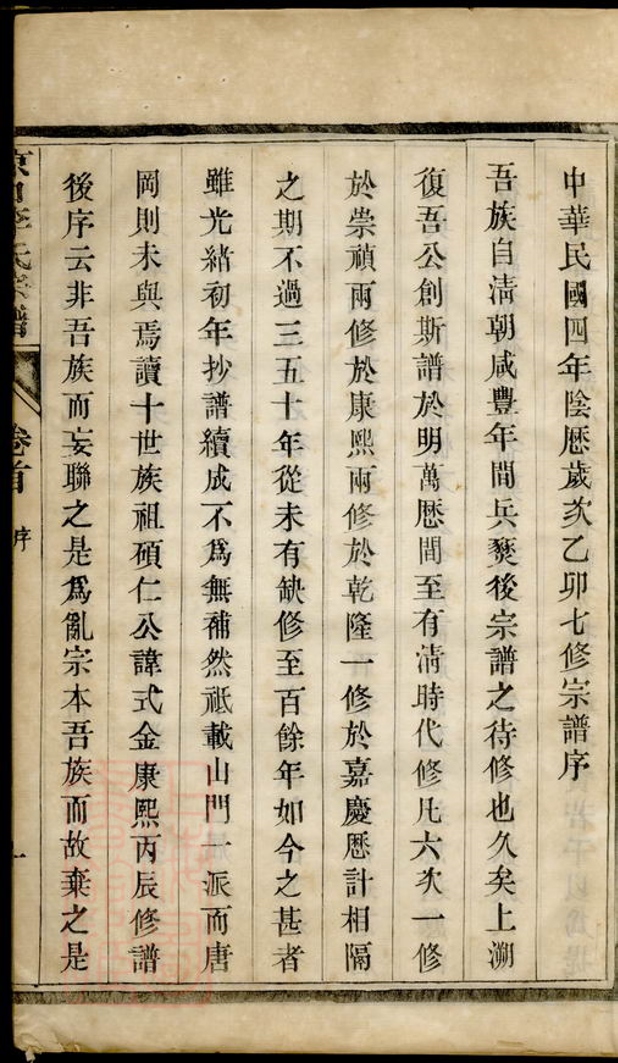 中華民國四年陰厯歲次乙卯七修宗譜序
吾族自淸朝咸豐年間兵燹後宗譜之待修也久矣上溯
復吾公創斯譜於明萬厯間至有淸時代修凡六次一修
於崇禎兩修於康熙兩修於乾隆一修於嘉慶厯計相隔
之期不過三五十年從未有缺修至百餘年如今之甚者
雖光緒初年抄譜續成不爲無補然祗載山門一派而唐
岡則未與焉讀十世族祖碩仁公諱式金康熙丙辰修譜
後序云非吾族而妄聯之是爲亂宗本吾族而故棄之是
李氏宗譜
卷首
序
一